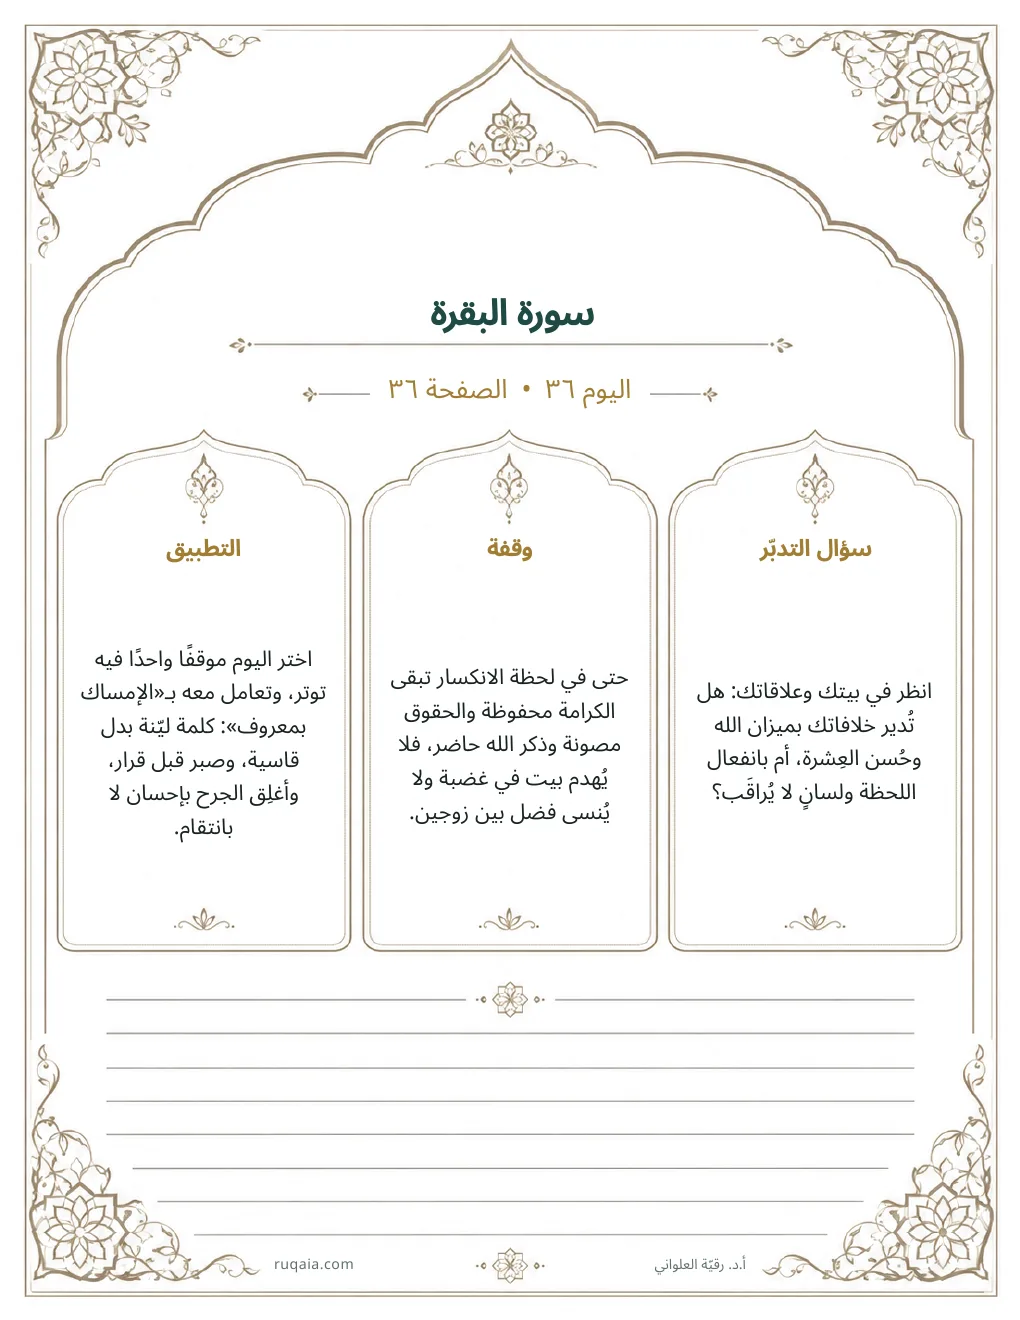 سورة البقرة
اليوم ٣٦ • الصفحة ٣٦
سؤال التدبّر
انظر في بيتك وعلاقاتك: هل
تُدير خلافاتك بميزان الله
وحُسن العِشرة، أم بانفعال
اللحظة ولسانٍ لا يُراقَب؟
وقفة
حتى في لحظة الانكسار تبقى
الكرامة محفوظة والحقوق
مصونة وذكر الله حاضر، فلا
يُهدم بيت في غضبة ولا
يُنسى فضل بين زوجين.
التطبيق
اختر اليوم موقفًا واحدًا فيه
توتر، وتعامل معه بـ«الإمساك
بمعروف»: كلمة ليّنة بدل
قاسية، وصبر قبل قرار،
وأغلِق الجرح بإحسان لا
بانتقام.
أ.د. رقيّة العلواني
ruqaia.com